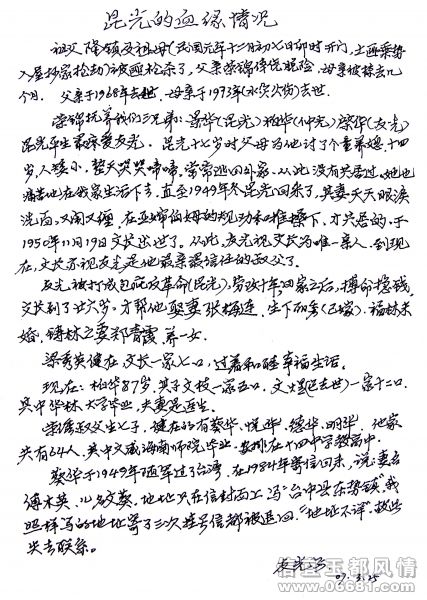 昆光的血缘情况
祖父 隆领及祖母(民国元年十二月初七日卯时开门,土匪乘势
入屋抄家抢劫)被匪枪杀了,父亲荣锦侥倖脱险,母亲被禁去几
个月. 父亲于1968年去世,母亲于1973年(农历次间)去世.
荣锦抚养我们三兄弟:梁华(昆光)柏华(仲光)蔡华(友光)
昆光平生最疼爱友光. 昆光十七岁时父母为他讨了个童养媳.十四
岁,人矮小,整天哭哭啼啼,常常逃回外家.从此没有共居过,她也
痛苦地在我家生活下去,直至1949年冬昆光回来了,其妻天天眼淚
洗面,又闹又缠,在亚婶伯母的规劝和推操下,才共居的,于
1950年11月19日文长出世了.从此,友光视文长为唯一亲人,到现
在,文长亦视友光是他最亲最信任的叔父了.
友光被打成包庇反革命(昆光),劳改十年,回家之后,搏命揾钱,
文长到了廿六岁,才帮他娶妻张梅连,生下丽贵(已嫁).福林未
婚,锦林之妻邓青霞,养一女.
梁秀英健在,文长一家七口,过着和睦幸福生活.
现在:柏华87岁,其子文枝一家五口,文火昆(已去世)一家十二口.
其中华林大学毕业,夫妻是医生.
荣儒叔父生七子,健在的有蔡华,悦华,德华,明华,他家
共有64人,其中文威海南师院毕业,安排在十四中学教高中.
蔡华于1949年随军过了台湾,在1984年寄信回来,说:妻古
傅木英,儿名文英,地址只在信封面上写"台中县东势镇",我
照样写的地址寄了三次挂号信都被退回,"地址不详".故此
失去联系.
友光 字
07.3.25
信宜玉都风情
www.06681.com